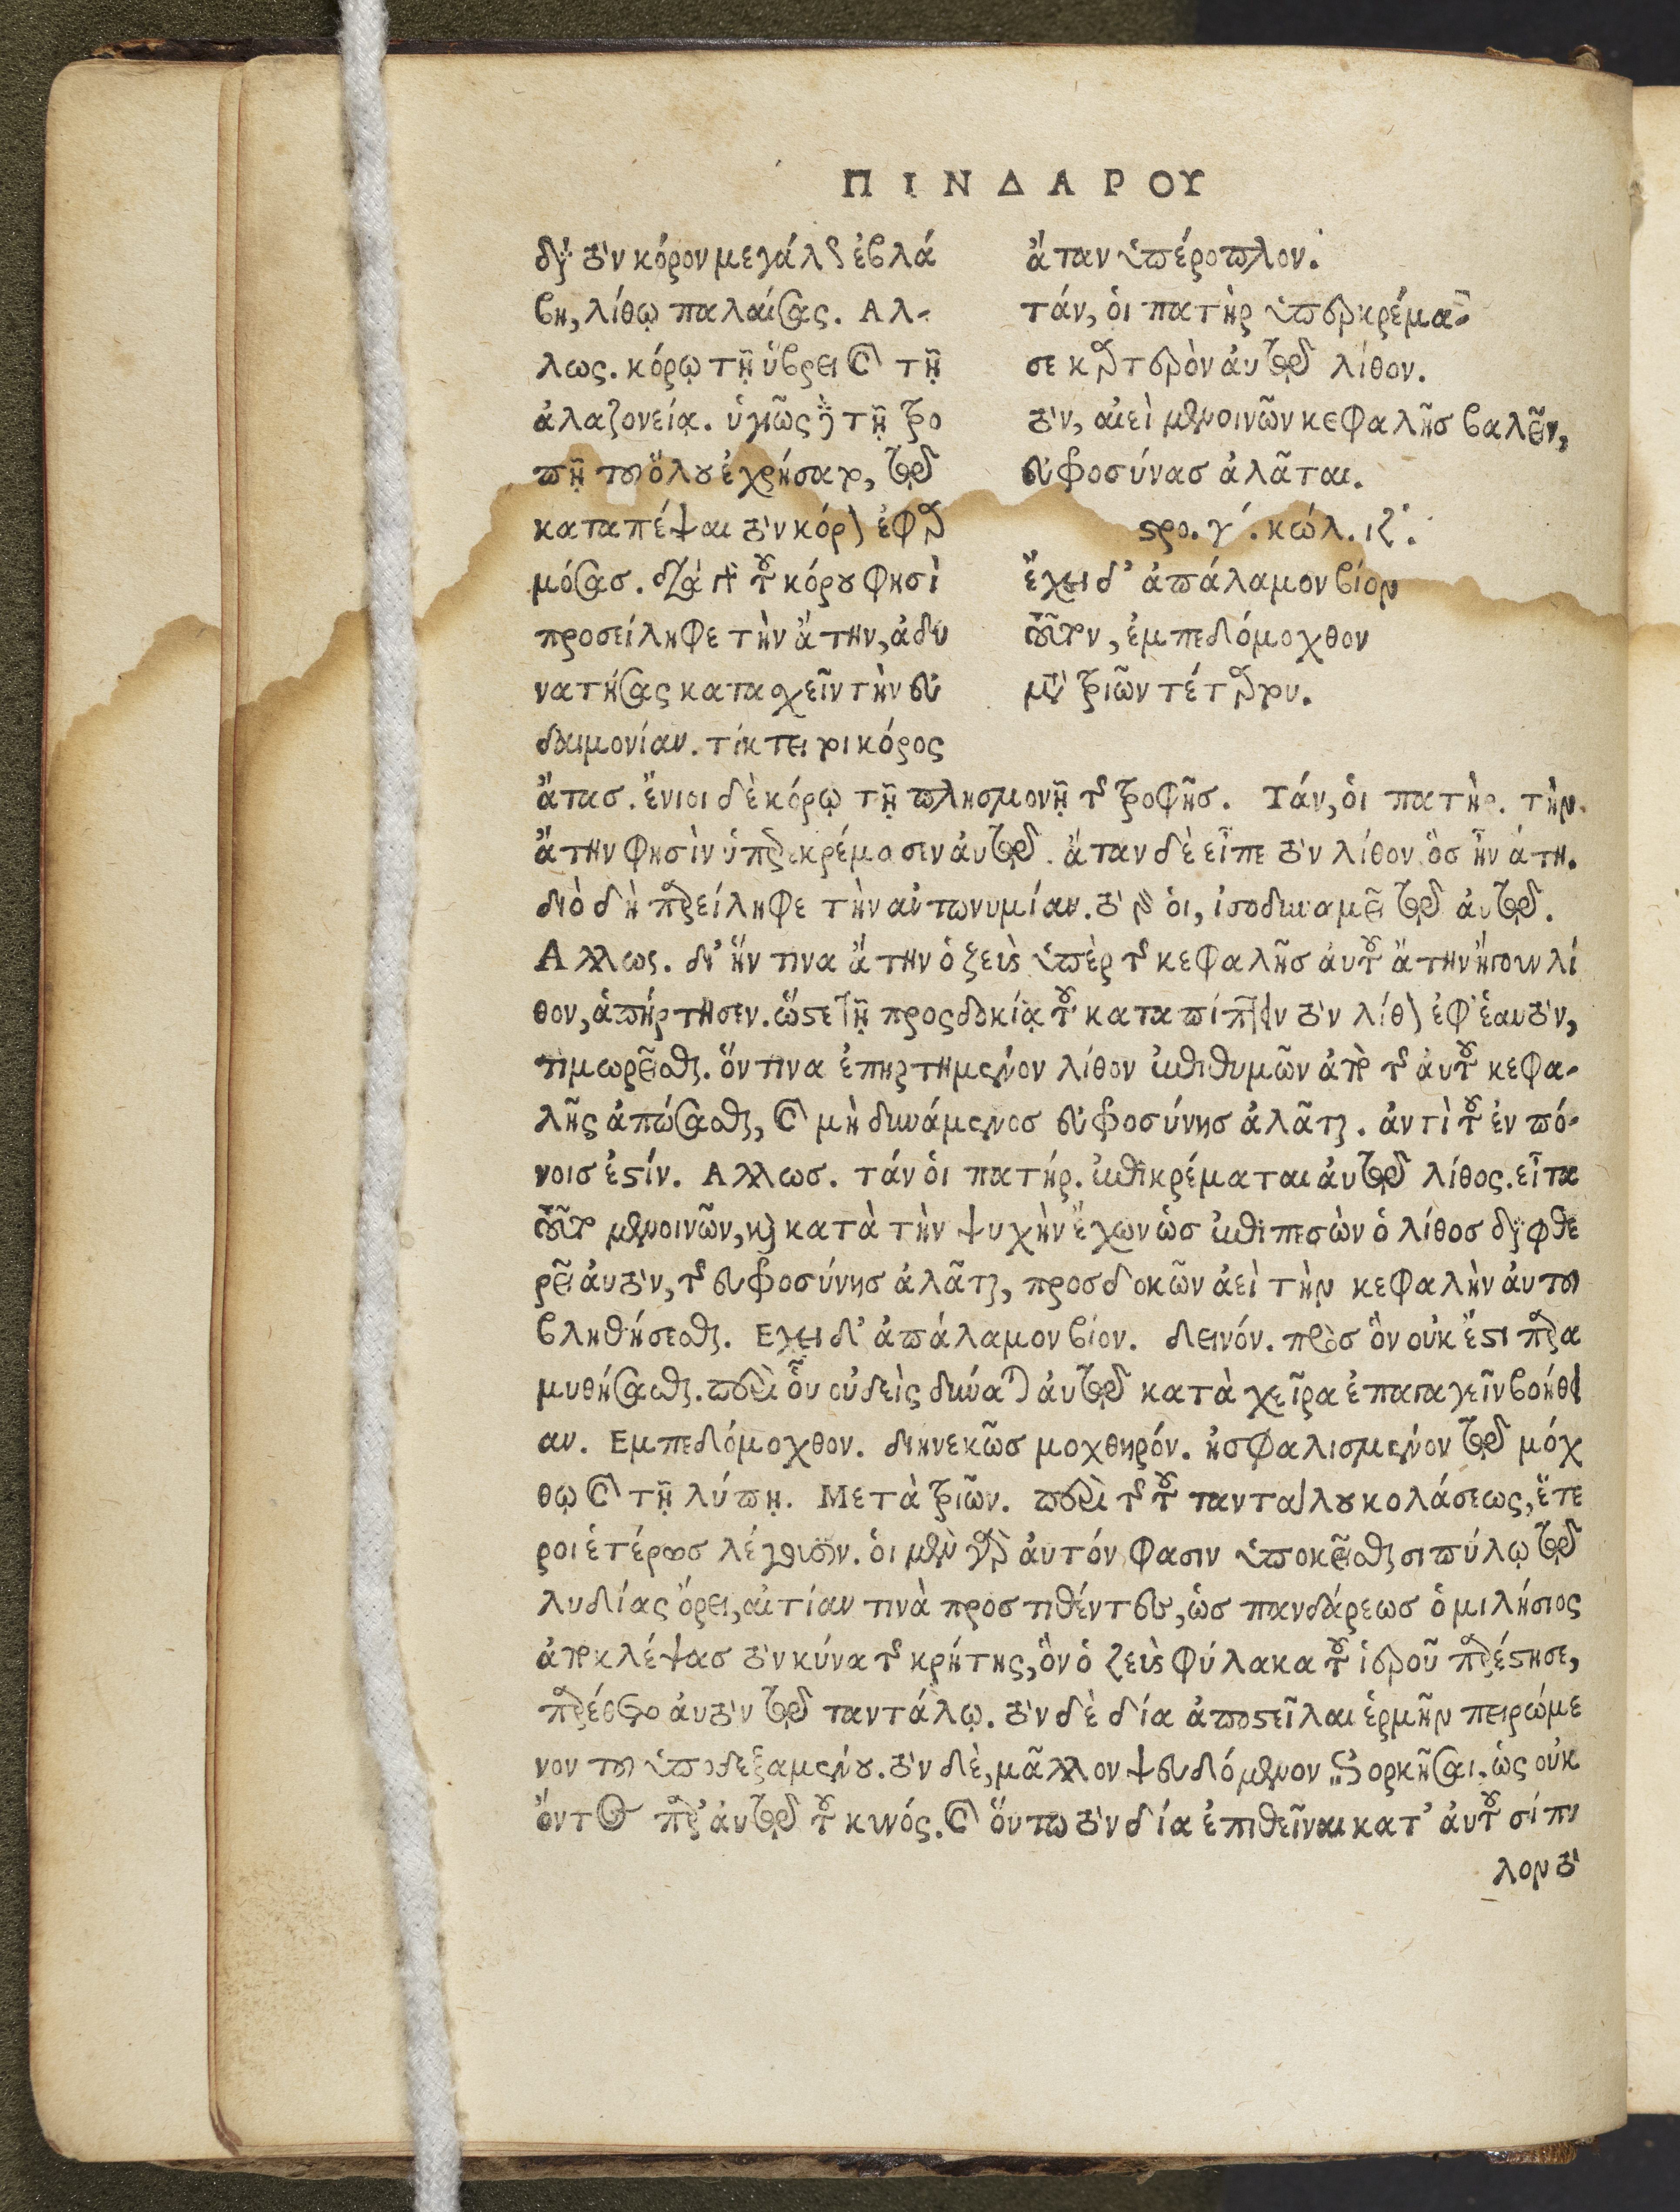 ΠΙΝΔΑΡΟΥ
διὰ τὸν κόρον μεγάλως ἐβλά
βη, λίθῳ παλαίσας. Αλ-
λως. κόρῳ τῇ ὕβρει καὶ τῇ
ἀλαζονείᾳ. ὑγιῶς δὲ τῇ τρο
πῇ τοῦ ὅλου ἐχρήσατο, τῷ
καταπέψαι τὸν κόρον ἐφαρ
μόσας. διὰ γὰρ τοῦ κόρου φησὶ
προσείληφε τὴν ἄτην, ἀδυ
νατήσας κατασχεῖν τὴν εὐ
δαιμονίαν. τίκτει τοι κόρος
ἄταν ὑπέροπλον.
τάν, ὁι πατὴρ ὑπερκρέμα-
σε καρτερὸν ἀυτῷ λίθον.
τὸν, αἰεὶ μενοινῶν κεφαλῆς βαλεῖν,
εὐφροσύνας ἀλᾶται.
στρο. γ΄. κώλ. ιζ΄.
ἔχει δ' ἀπάλαμον βίον
τοῦτον, ἐμπεδόμοχθον
μετὰ τριῶν τέταρτον.
ἄτας. ἔνιοι δὲ κόρῳ τῇ πλησμονῇ τῆς τροφῆς. Τάν, ὁι πατὴρ. τὴν
ἄτην φησὶν ὑπερεκρέμασεν ἀυτῷ. ἄταν δὲ εἶπε τὸν λίθον ὃς ἦν ἄτη.
διὸ δὴ παρείληφε τὴν αὐτωνυμίαν. τὸ γὰρ ὁι, ἰσοδυναμεῖ τῷ ἀυτῷ.
Αλλως. δι' ἥν τινα ἄτην ὁ ζεὺς ὑπὲρ τῆς κεφαλῆς ἀυτοῦ ἄτην ἤγουν λί
θον, ἀπήρτησεν. ὥστε τῇ προσδοκίᾳ τοῦ καταπίπτειν τὸν λίθον ἐφ' ἑαυτὸν,
τιμωρεῖσθαι. ὅν τινα ἐπηρτημένον λίθον ἐπιθυμῶν ἀπὸ τῆς ἀυτοῦ κεφα-
λῆς ἀπώσασθαι, καὶ μὴ δυνάμενος εὐφροσύνης ἀλᾶται. ἀντὶ τοῦ ἐν πό-
νοις ἐστίν. Αλλως. τάν ὁι πατήρ. ἐπικρέμαται ἀυτῷ λίθος. εἶτα
τοῦτο μενοινῶν, καὶ κατὰ τὴν ψυχὴν ἔχων ὡς ἐπιπεσὼν ὁ λίθος διαφθε
ρεῖ ἀυτὸν, τῆς εὐφροσύνης ἀλᾶται, προσδοκῶν ἀεὶ τὴν κεφαλὴν ἀυτοῦ
βληθήσεσθαι. Εχει δ' ἀπάλαμον βίον. δεινόν. πρὸς ὃν οὐκ ἔστι παρα
μυθήσασθαι. περὶ ὃν οὐδεὶς δύναται ἀυτῷ κατὰ χεῖρα ἐπαγαγεῖν βοήθει
αν. Εμπεδόμοχθον. διηνεκῶς μοχθηρόν. ἠσφαλισμένον τῷ μόχ
θῳ καὶ τῇ λύπῃ. Μετὰ τριῶν. περὶ τῆς τοῦ ταντάλου κολάσεως, ἕτε
ροι ἑτέρως λέγουσιν. ὁι μὲν γὰρ ἀυτόν φασιν ὑποκεῖσθαι σιπύλῳ τῷ
λυδίας ὄρει, αἰτίαν τινὰ προστιθέντες, ὡς πανδάρεως ὁ μιλήσιος
ἀποκλέψας τὸν κύνα τῆς κρήτης, ὃν ὁ ζεὺς φύλακα τοῦ ἱεροῦ παρέστησε,
παρέθετο ἀυτὸν τῷ ταντάλῳ. τὸν δὲ δία ἀποστεῖλαι ἑρμῆν πειρώμε
νον τοῦ ὑποδεξαμένου. τὸν δὲ, μᾶλλον ψευδόμενον διορκῆσαι. ὡς οὐκ
ὄντος παρ' ἀυτῷ τοῦ κυνός. καὶ ὅυτω τὸν δία ἐπιθεῖναι κατ' ἀυτοῦ σίπυ
λον τὸ